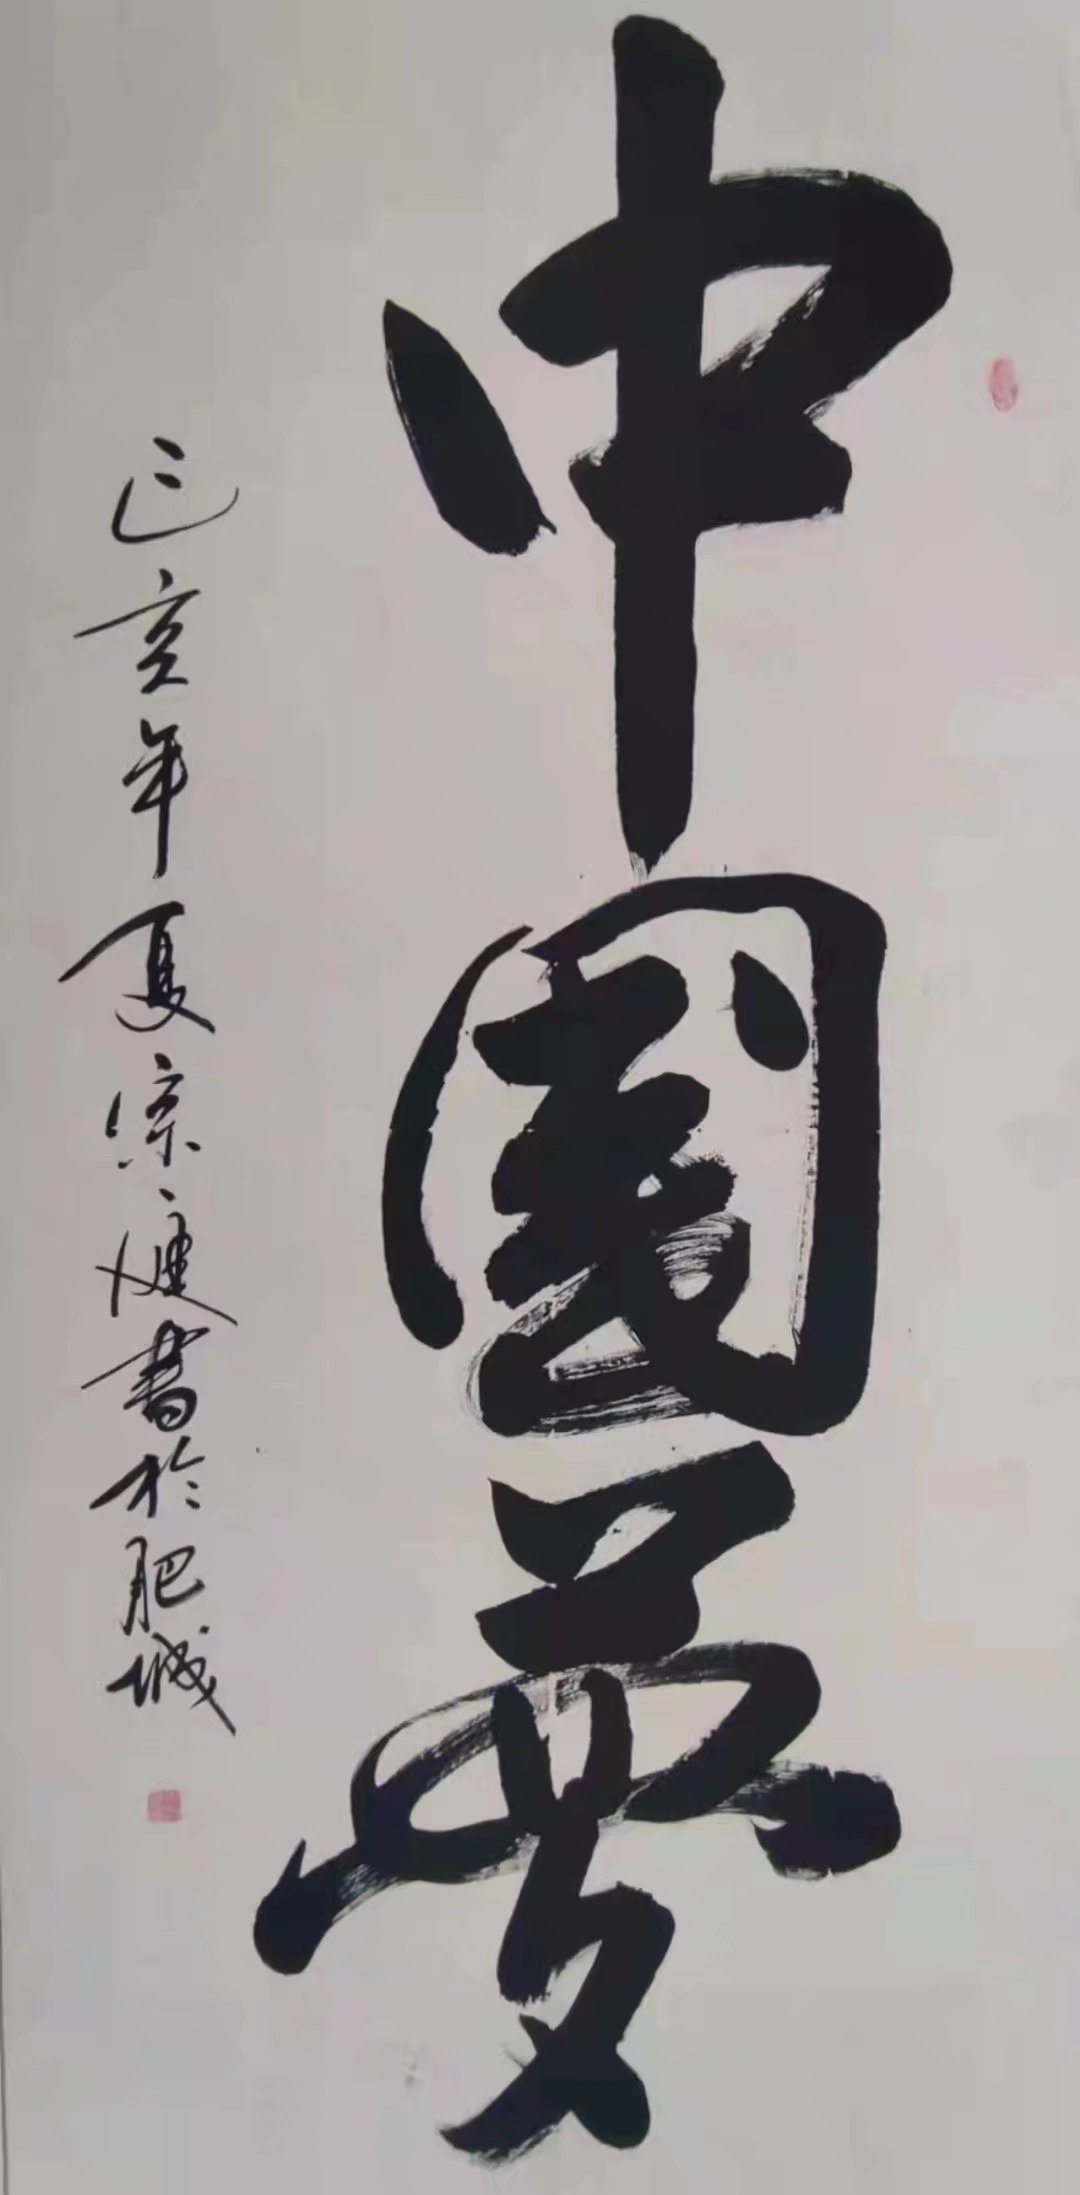 中國夢
己亥年夏宗健書於肥城